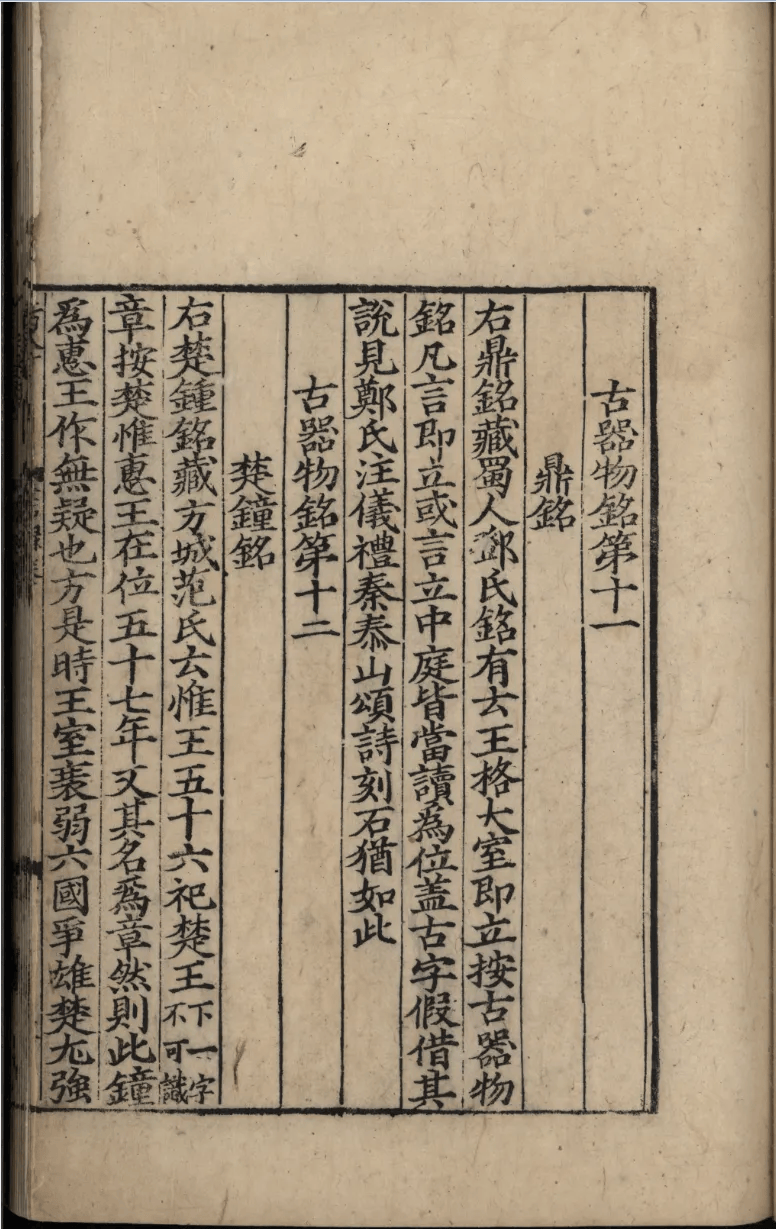 古器物銘第十一
鼎銘
右鼎銘藏蜀人鄧氏銘有云王格大室即立按古器物
銘凡言即立或言立中庭皆當讀爲位蓋古字假借其
說見鄭氏注儀禮秦泰山頌詩刻石猶如此
古器物銘第十二
楚鐘銘
右楚鍾銘藏方城范氏云惟王五十六祀楚王下一字不可識
章按楚惟惠王在位五十七年又其名爲章然則此鐘
爲惠王作無疑也方是時王室衰弱六國爭雄楚尢強